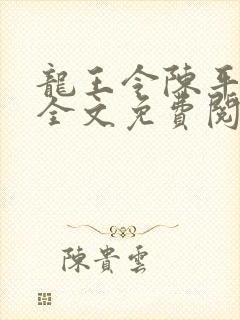 龍王令陳平
全文免費閱
陳貴雲